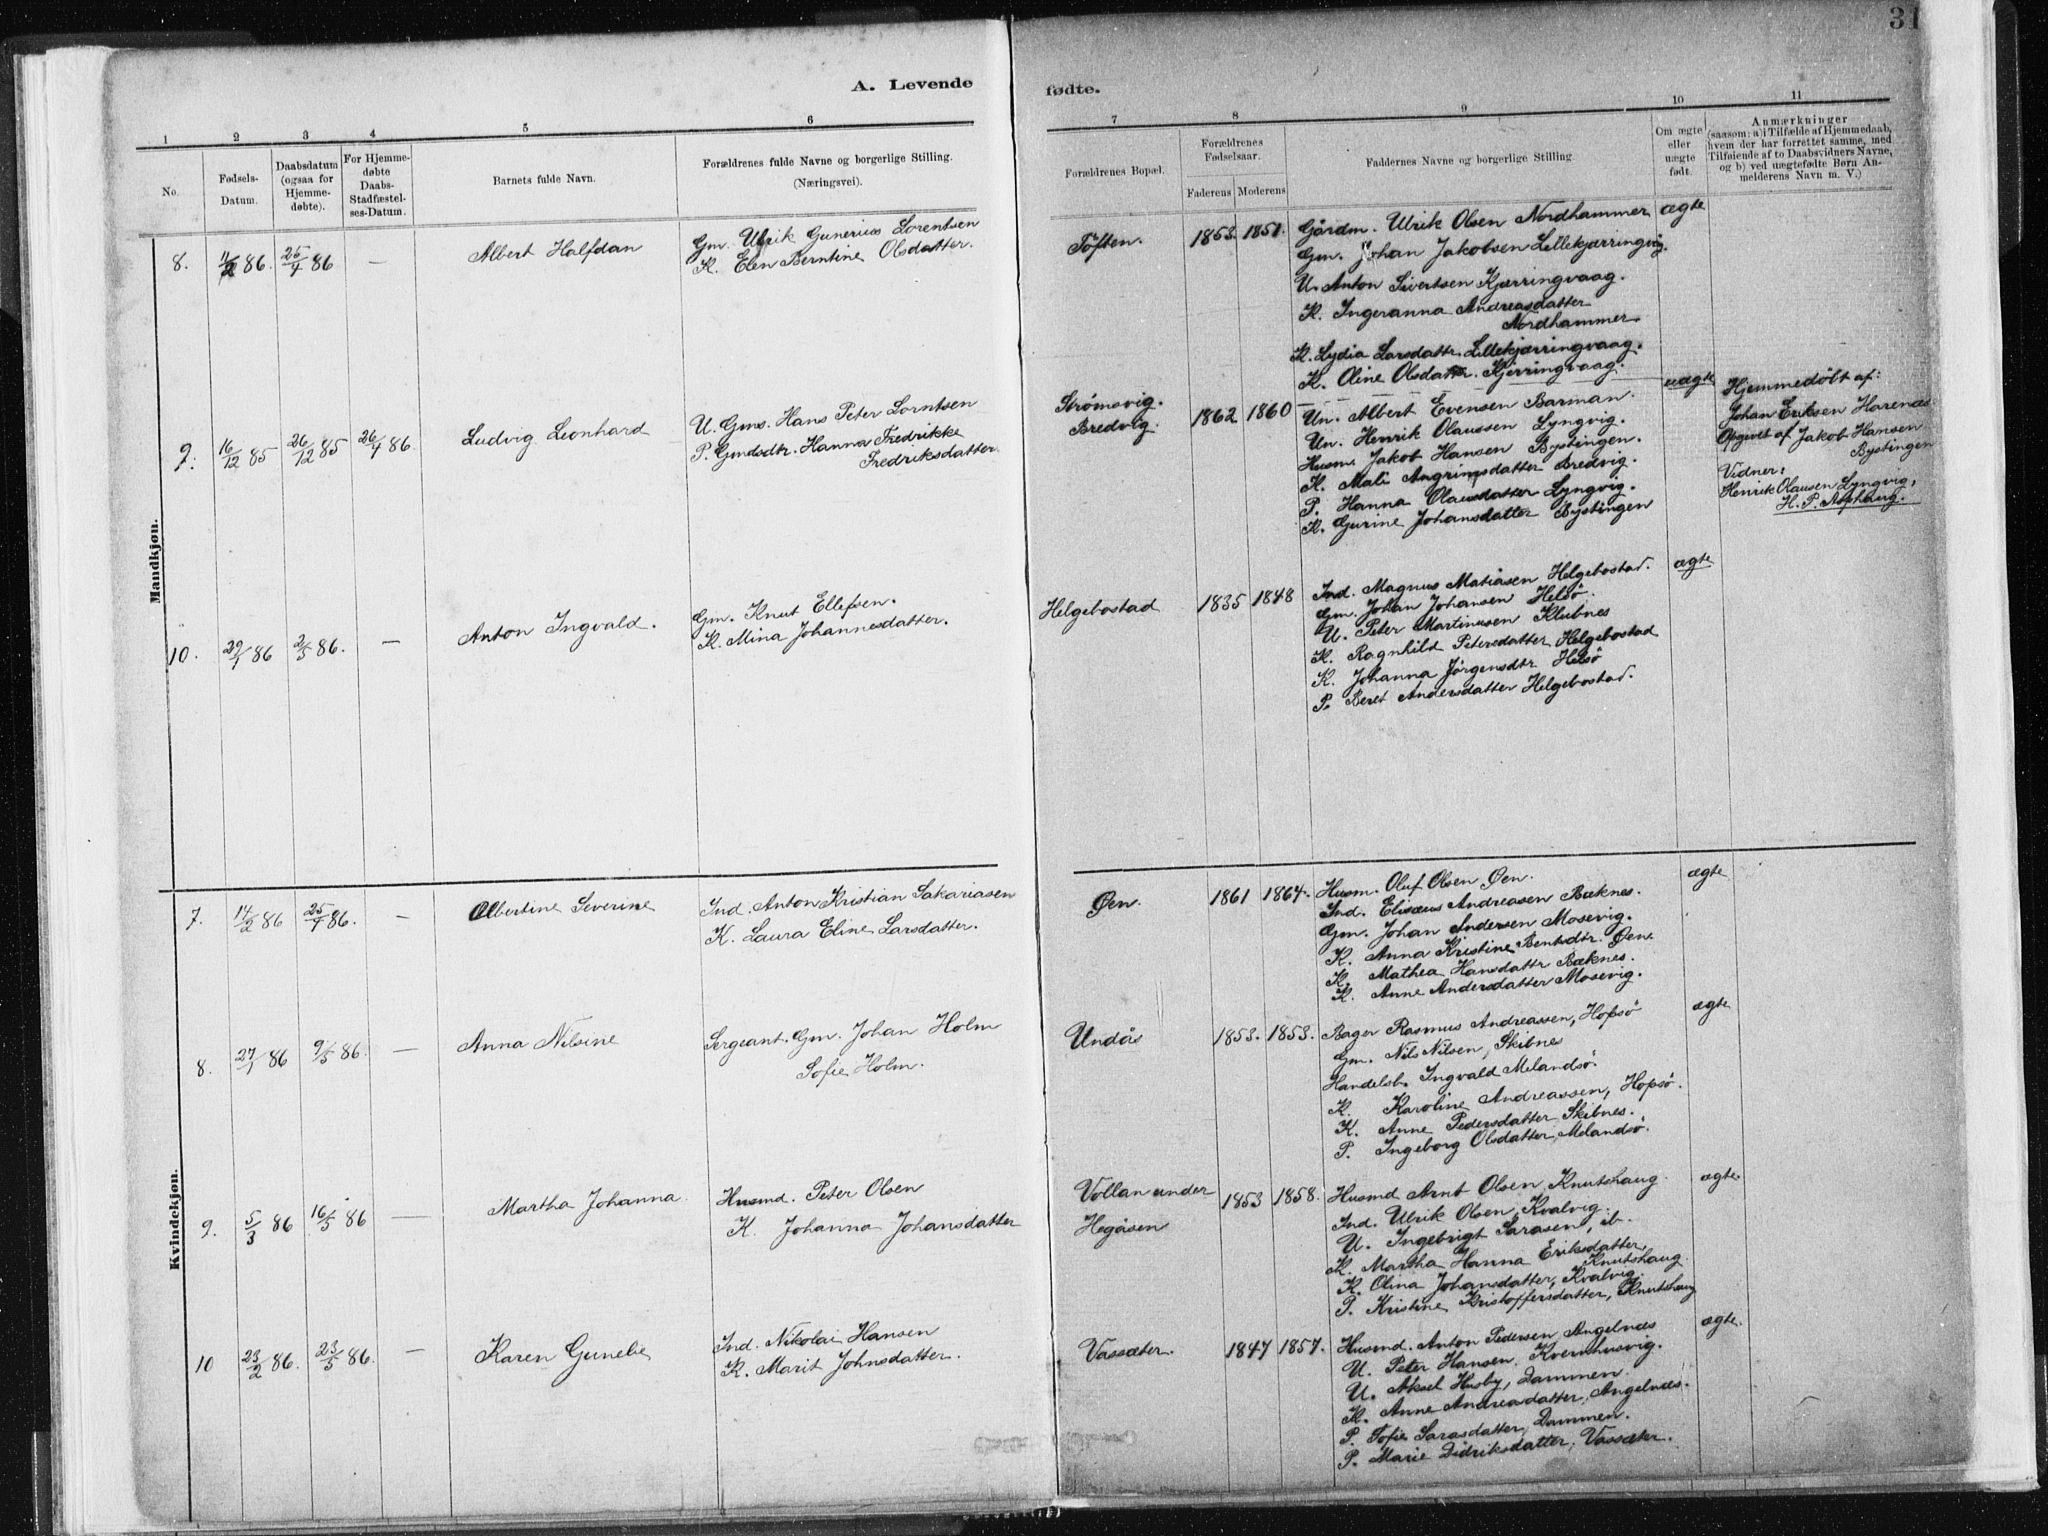 31
A. Levende
fødte.
1 2 3 4 5 6 7 8 9 10 11
No.
Fødsels-
Datum.
Daabsdatum
(ogsaa for
Hjemme-
døbte).
For Hjemme-
døbte
Daabs-
Stadfæstel-
ses-Datum.
Barnets fulde Navn.
Forældrenes fulde Navne og borgerlige Stilling.
(Næringsvei).
Forældrenes Bopæl.
Forældrenes
Fødselsaar.
Faderens Moderens
Faddernes Navne og borgerlige Stilling
Om ægte
eller
uægte
født.
Anmærkninger
(saasom: a) i Tilfælde af Hjemmedaab,
hvem der har forrettet samme, med
Tilføiende af to Daabsvidners Navne,
og b) ved uægtefødte Børn An-
melderens Navn m. V.)
Mandkjøn.
8. 11/2 86. 25/4 86 — Albert Halfdan
Gm. Ulrik Gunerius Lorentsen
K. Elen Berntine Olsdatter.
Töften. 1853. 1851.
Gårdm. Ulrik Olsen Nordhammer ægte
Gm. Johan Jakobsen Lillekjærringvig.
U. Anton Sivertsen Kjærringvaag.
K. Ingeranna Andreasdatter
Nordhammer
K. Lydia Larsdattr. Lillekjærringvaag.
K. Oline Olsdattr. Kjerringvaag.
9. 16/12 85 26/12 85 26/4 86 Ludvig Leonhard
U. Gms. Hans Peter Lorntsen
P. Gmdsdtr. Hanna Fredrikke
Fredriksdatter
Strømsvig.
Bredvig.
1862 1860
Un. Albert Evensen Barman. uægte
Un. Henrik Olaussen Lyngvig.
Husm. Jakob Hansen Bystingen.
K. Mali Angrimsdatter Bredvig.
P. Hanna Olausdatter Lyngvig.
K. Gurine Johansdatter Bystingen
Hjemmedöbt af:
Johan Eriksen Harenæs
Opgivet af Jakob Hansen
Bystingen
Vidner:
Henrik Olausen Lyngvig,
H. P. Asphaug.
10. 29/1 86 2/5 86. — Anton Ingvald.
Gm. Knut Ellefsen.
K. Mina Johannesdatter.
Helgebostad 1835 1848
Ind. Magnus Matiasen Helgebostad. ægte
Gm. Johan Johansen Helsö.
U. Peter Martinusen Klubnes
K. Ragnhild Petersdatter Helgebostad
K. Johanna Jörgensdtr Helsö
P. Beret Andersdatter Helgebostad.
Kvindekjøn.
7. 14/2 86 25/4 86. — Albertine Severine
Ind. Anton Kristian Sakariasen
K. Laura Eline Larsdatter.
Øen. 1861 1864.
Husm. Oluf Olsen Øen. ægte
Ind. Elisæus Andreasen Bæknes.
Gm. Johan Andersen Mosevig.
K. Anna Kristine Bentsdtr. Øen.
K. Mathea Hansdattr Bæknes.
K. Anne Andersdatter Mosevig.
8. 27/1 86 9/5 86. — Anna Nilsine
Sergeant. Gm. Johan Holm
Sofie Holm.
Undås 1853. 1853.
Bager Rasmus Andreassen, Hopsö ægte
Gm. Nils Nilsen, Skibnes
Handelsb. Ingvald Melandsö.
K. Karoline Andreassen, Hopsö.
K. Anne Pedersdatter Skibnes.
P. Ingeborg Olsdatter, Melandsö.
9. 5/3 86 16/5 86 — Martha Johanna.
Husmd. Peter Olsen
K. Johanna Johansdatter
Vollan under
Hegåsen
1853 1858.
Husmd Arnt Olsen, Knutshaug. ægte.
Ind. Ulrik Olsen, Kvalvig.
U. Ingebrigt Sarasen, ib.
K. Martha Hanna Eriksdatter,
Knutshaug
K. Olina Johansdatter, Kvalvig.
P. Kristine Kristoffersdatter, Knutshaug
10 23/2 86. 23/5 86. — Karen Gunelie
Ind. Nikolai Hansen
K. Marit Johnsdatter.
Vassæter. 1847 1857.
Husmd. Anton Pedersen Angelnæs ægte.
U. Peter Hansen, Kvernhusvig.
U. Aksel Husby, Dammen.
K. Anne Andreadatter, Angelnæs.
P. Sofie Sarasdatter, Dammen.
P. Marie Didriksdatter, Vassæter.